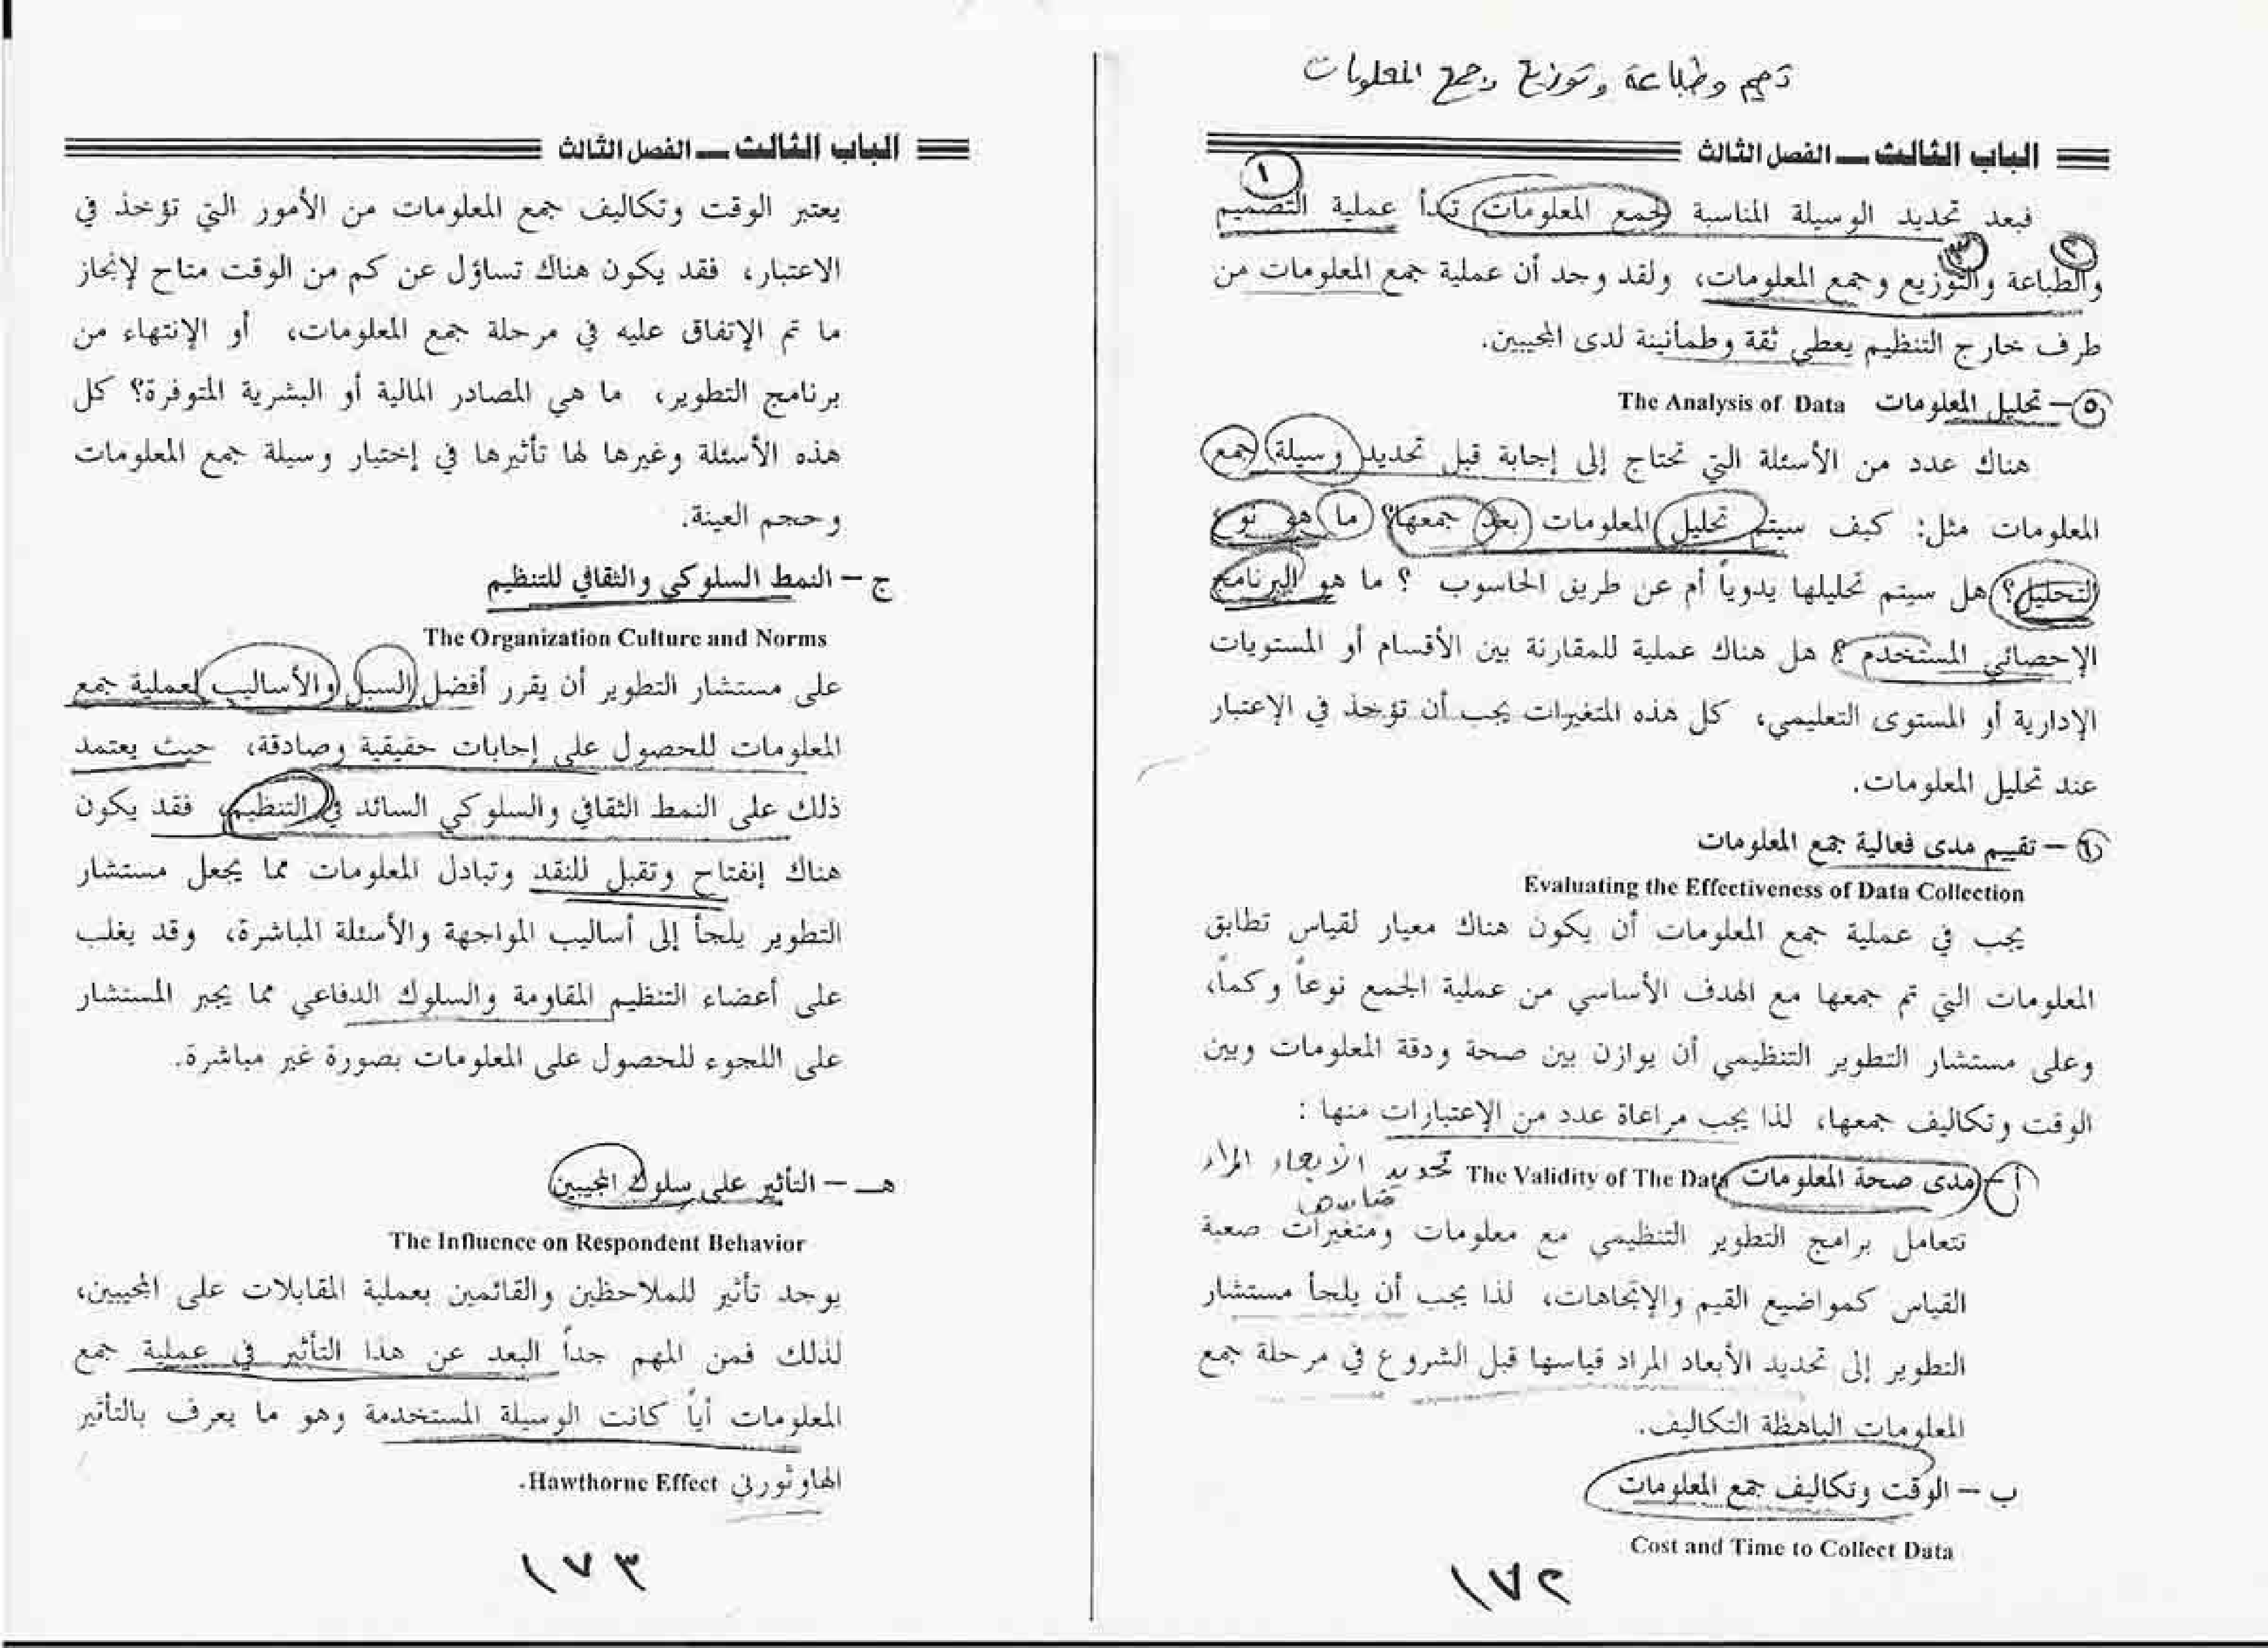 تصميم وطباعة وتوزيع وجمع المعلومات
الباب الثالث ــ الفصل الثالث
١
فبعد تحديد الوسيلة المناسبة لجمع المعلومات تبدأ عملية التصميم
٢ ٣
والطباعة والتوزيع وجمع المعلومات، ولقد وجد أن عملية جمع المعلومات من
طرف خارج التنظيم يعطي ثقة وطمأنينة لدى المجيبين.
٥ – تحليل المعلومات The Analysis of Data
هناك عدد من الأسئلة التي تحتاج إلى إجابة قبل تحديد وسيلة جمع
المعلومات مثل: كيف سيتم تحليل المعلومات بعد جمعها؟ ما هو نوع
التحليل؟ هل سيتم تحليلها يدوياً أم عن طريق الحاسوب ؟ ما هو البرنامج
الإحصائي المستخدم ؟ هل هناك عملية للمقارنة بين الأقسام أو المستويات
الإدارية أو المستوى التعليمي، كل هذه المتغيرات يجب أن تؤخذ في الإعتبار
عند تحليل المعلومات.
٦ – تقييم مدى فعالية جمع المعلومات
Evaluating the Effectiveness of Data Collection
يجب في عملية جمع المعلومات أن يكون هناك معيار لقياس تطابق
المعلومات التي تم جمعها مع الهدف الأساسي من عملية الجمع نوعاً وكماً،
وعلى مستشار التطوير التنظيمي أن يوازن بين صحة ودقة المعلومات وبين
الوقت وتكاليف جمعها، لذا يجب مراعاة عدد من الإعتبارات منها :
أ – مدى صحة المعلومات The Validity of The Data تحديد الأبعاد المراد
قياسها
تتعامل برامج التطوير التنظيمي مع معلومات ومتغيرات صعبة
القياس كمواضيع القيم والإتجاهات، لذا يجب أن يلجأ مستشار
التطوير إلى تحديد الأبعاد المراد قياسها قبل الشروع في مرحلة جمع
المعلومات الباهظة التكاليف.
ب – الوقت وتكاليف جمع المعلومات
Cost and Time to Collect Data
١٧٢
الباب الثالث ــ الفصل الثالث
يعتبر الوقت وتكاليف جمع المعلومات من الأمور التي تؤخذ في
الاعتبار، فقد يكون هناك تساؤل عن كم من الوقت متاح لإنجاز
ما تم الإتفاق عليه في مرحلة جمع المعلومات، أو الإنتهاء من
برنامج التطوير، ما هي المصادر المالية أو البشرية المتوفرة؟ كل
هذه الأسئلة وغيرها لها تأثيرها في إختيار وسيلة جمع المعلومات
وحجم العينة.
ج – النمط السلوكي والثقافي للتنظيم
The Organization Culture and Norms
على مستشار التطوير أن يقرر أفضل السبل والأساليب لعملية جمع
المعلومات للحصول على إجابات حقيقية وصادقة، حيث يعتمد
ذلك على النمط الثقافي والسلوكي السائد في التنظيم، فقد يكون
هناك إنفتاح وتقبل للنقد وتبادل المعلومات مما يجعل مستشار
التطوير يلجأ إلى أساليب المواجهة والأسئلة المباشرة، وقد يغلب
على أعضاء التنظيم المقاومة والسلوك الدفاعي مما يجبر المستشار
على اللجوء للحصول على المعلومات بصورة غير مباشرة.
هـ – التأثير على سلوك المجيبين
The Influence on Respondent Behavior
يوجد تأثير للملاحظين والقائمين بعملية المقابلات على المجيبين،
لذلك فمن المهم جداً البعد عن هذا التأثير في عملية جمع
المعلومات أياً كانت الوسيلة المستخدمة وهو ما يعرف بالتأثير
الهاوثورني Hawthorne Effect.
١٧٣